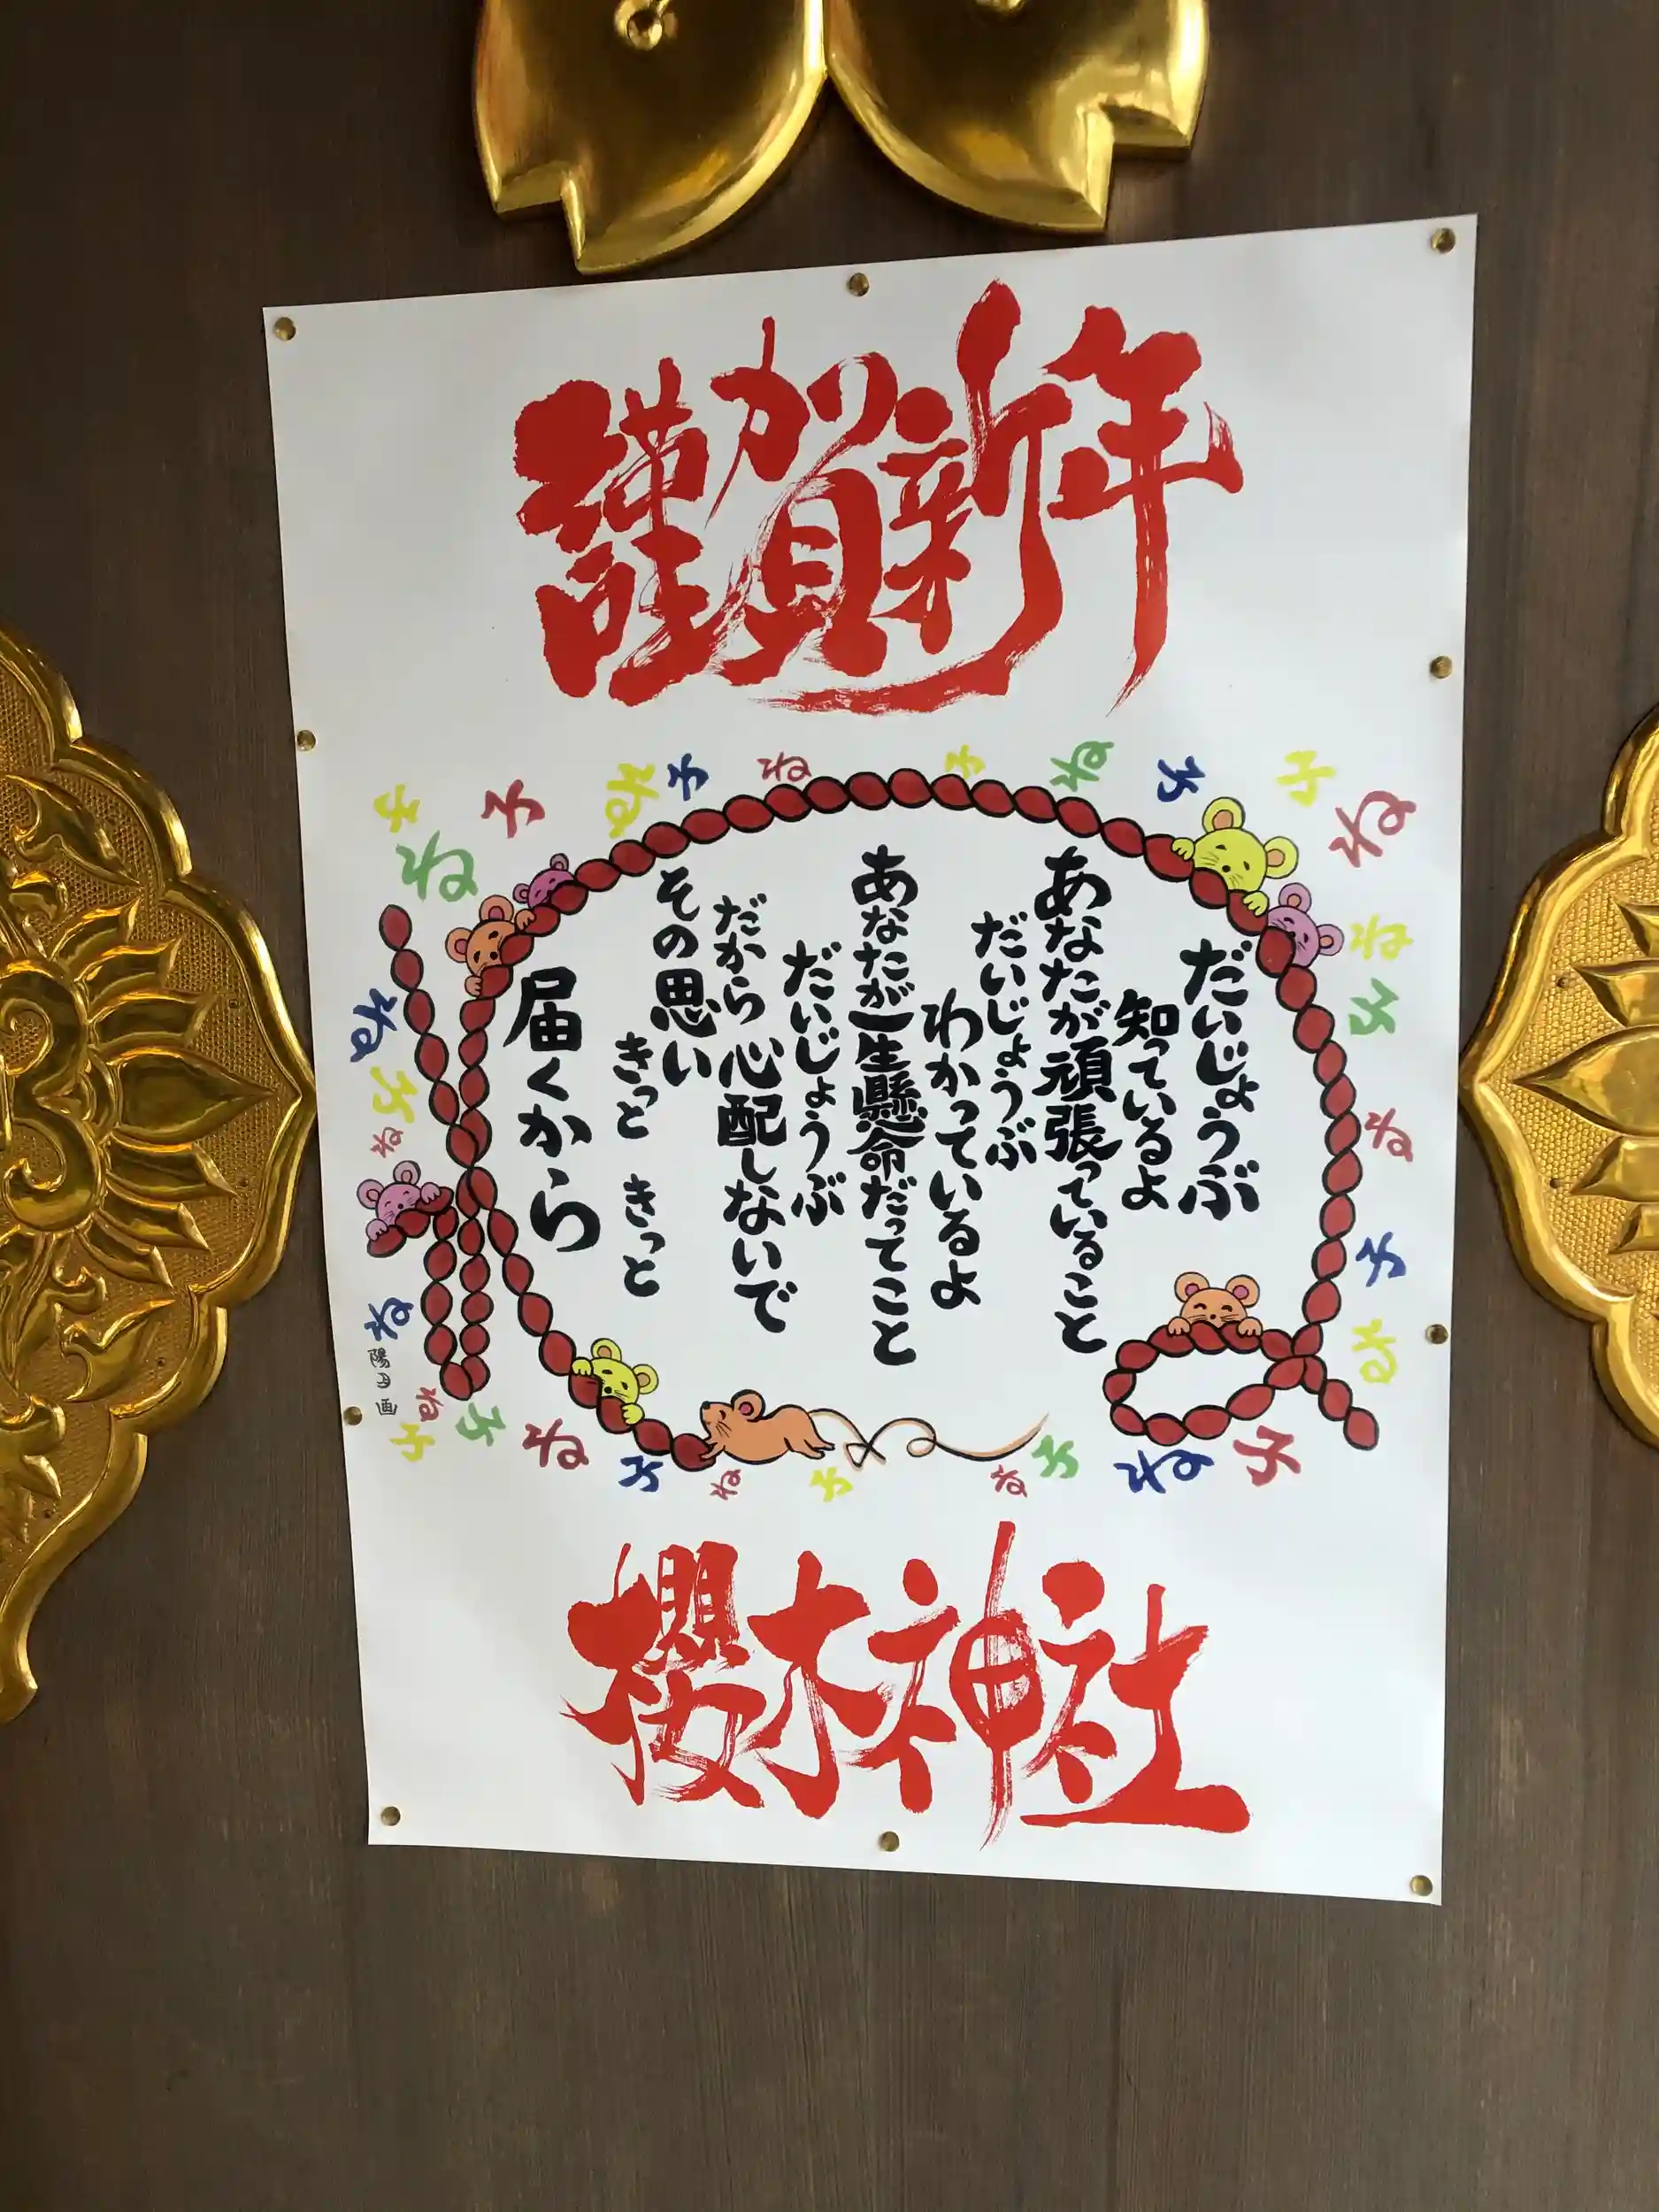 謹賀新年
だいじょうぶ
知っているよ
あなたが頑張っていること
だいじょうぶ
わかっているよ
あなたが一生懸命だってこと
だいじょうぶ
だから 心配しないで
その思い
きっと きっと
届くから
櫻木神社